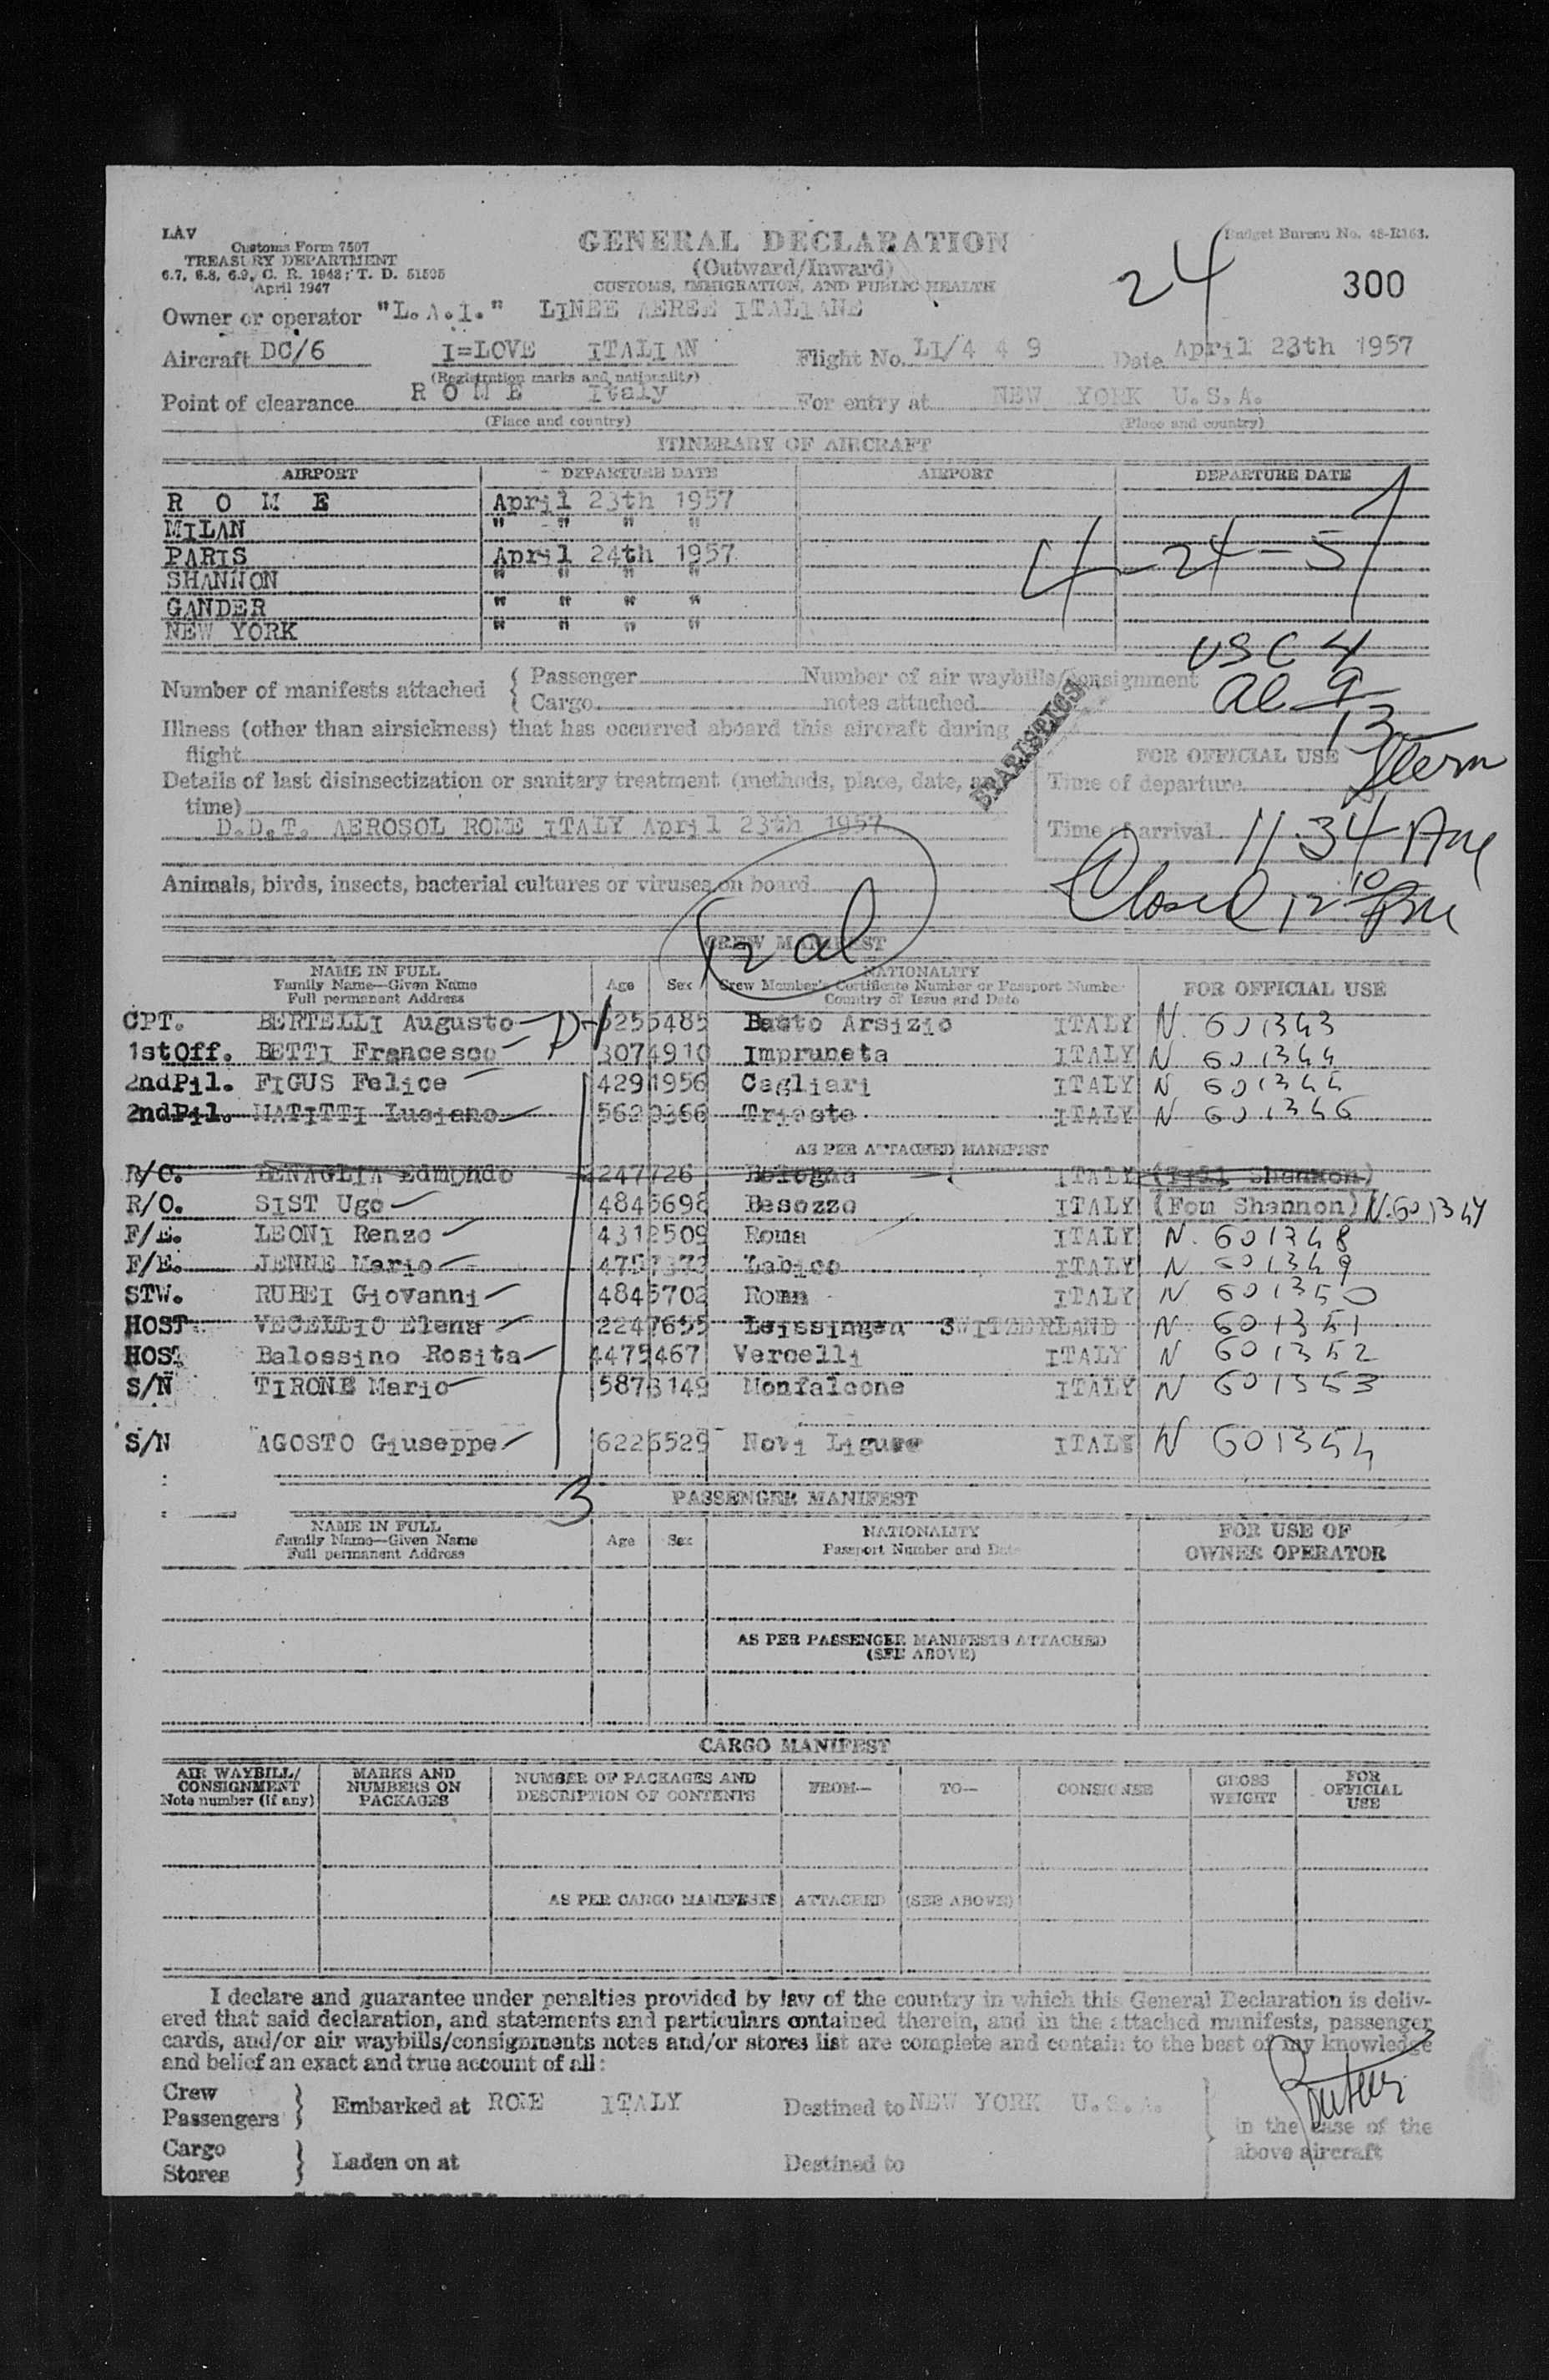 LAV
Customs Form 7507
TREASURY DEPARTMENT
6.7, 6.8, 6.9, C. R. 1948; T. D. 51505
April 1947
GENERAL DECLARATION
(Outward/Inward)
CUSTOMS, IMMIGRATION, AND PUBLIC HEALTH
Budget Bureau No. 48-R163.
24
300
Owner or operator "L.A.I." LINEE AEREE ITALIANE
Aircraft DC/6 I=LOVE ITALIAN Flight No. LI/4 4 9 Date April 23th 1957
(Registration marks and nationality)
Point of clearance R O M E Italy For entry at NEW YORK U.S.A.
(Place and country) (Place and country)
ITINERARY OF AIRCRAFT
AIRPORT DEPARTURE DATE AIRPORT DEPARTURE DATE
R O M E April 23th 1957
MILAN " " " "
PARIS April 24th 1957
SHANNON " " " "
4-24-57
GANDER " " " "
NEW YORK " " " "
USC 4
Number of manifests attached { Passenger Number of air waybills/consignment
Cargo notes attached
al 9
13
Illness (other than airsickness) that has occurred aboard this aircraft during
flight
STATISTICS
FOR OFFICIAL USE
Stern
Details of last disinsectization or sanitary treatment (methods, place, date,
time)
Time of departure
D.D.T. AEROSOL ROME ITALY April 23th 1957
Time of arrival 11.34 Am
Animals, birds, insects, bacterial cultures or viruses on board
Closed 12 10 Pm
12 al
CREW MANIFEST
NAME IN FULL
Family Name—Given Name
Full permanent Address
Age Sex
NATIONALITY
Crew Member's Certificate Number or Passport Number
Country of Issue and Date
FOR OFFICIAL USE
CPT. BERTELLI Augusto D-1 5255485 Basto Arsizio ITALY N. 601343
1stOff. BETTI Francesco 3074910 Impruneta ITALY N 601344
2ndPil. FIGUS Felice 4291956 Cagliari ITALY N 601345
2ndPil. MATITTI Luciano 5620366 Trieste ITALY N 601346
AS PER ATTACHED MANIFEST
R/O. BENAGLIA Edmondo 247726 Bologna ITALY (Till Shannon)
R/O. SIST Ugo 4845698 Besozzo ITALY (Fom Shannon) N.601347
F/E. LEONI Renzo 4312509 Roma ITALY N. 601348
F/E. JENNE Mario Labico ITALY N 601349
STW. RUBEI Giovanni 4845702 Roma ITALY N 601350
HOST VECELLIO Elena 2247655 Leissingen SWITZERLAND N 601351
HOST Balossino Rosita 4475467 Vercelli ITALY N 601352
S/N TIRONE Mario 5873149 Monfalcone ITALY N 601353
S/N AGOSTO Giuseppe 6226529 Novi Ligure ITALY N 601354
3
PASSENGER MANIFEST
NAME IN FULL
Family Name—Given Name
Full permanent Address
Age Sex
NATIONALITY
Passport Number and Date
FOR USE OF
OWNER OPERATOR
AS PER PASSENGER MANIFESTS ATTACHED
(SEE ABOVE)
CARGO MANIFEST
AIR WAYBILL/
CONSIGNMENT
Note number (if any)
MARKS AND
NUMBERS ON
PACKAGES
NUMBER OF PACKAGES AND
DESCRIPTION OF CONTENTS
FROM— TO— CONSIGNEE
GROSS
WEIGHT
FOR
OFFICIAL
USE
AS PER CARGO MANIFESTS ATTACHED (SEE ABOVE)
I declare and guarantee under penalties provided by law of the country in which this General Declaration is deliv-
ered that said declaration, and statements and particulars contained therein, and in the attached manifests, passenger
cards, and/or air waybills/consignments notes and/or stores list are complete and contain to the best of my knowledge
and belief an exact and true account of all:
Crew
Passengers } Embarked at ROME ITALY Destined to NEW YORK U.S.A.
in the case of the
above aircraft
Cargo
Stores } Laden on at Destined to